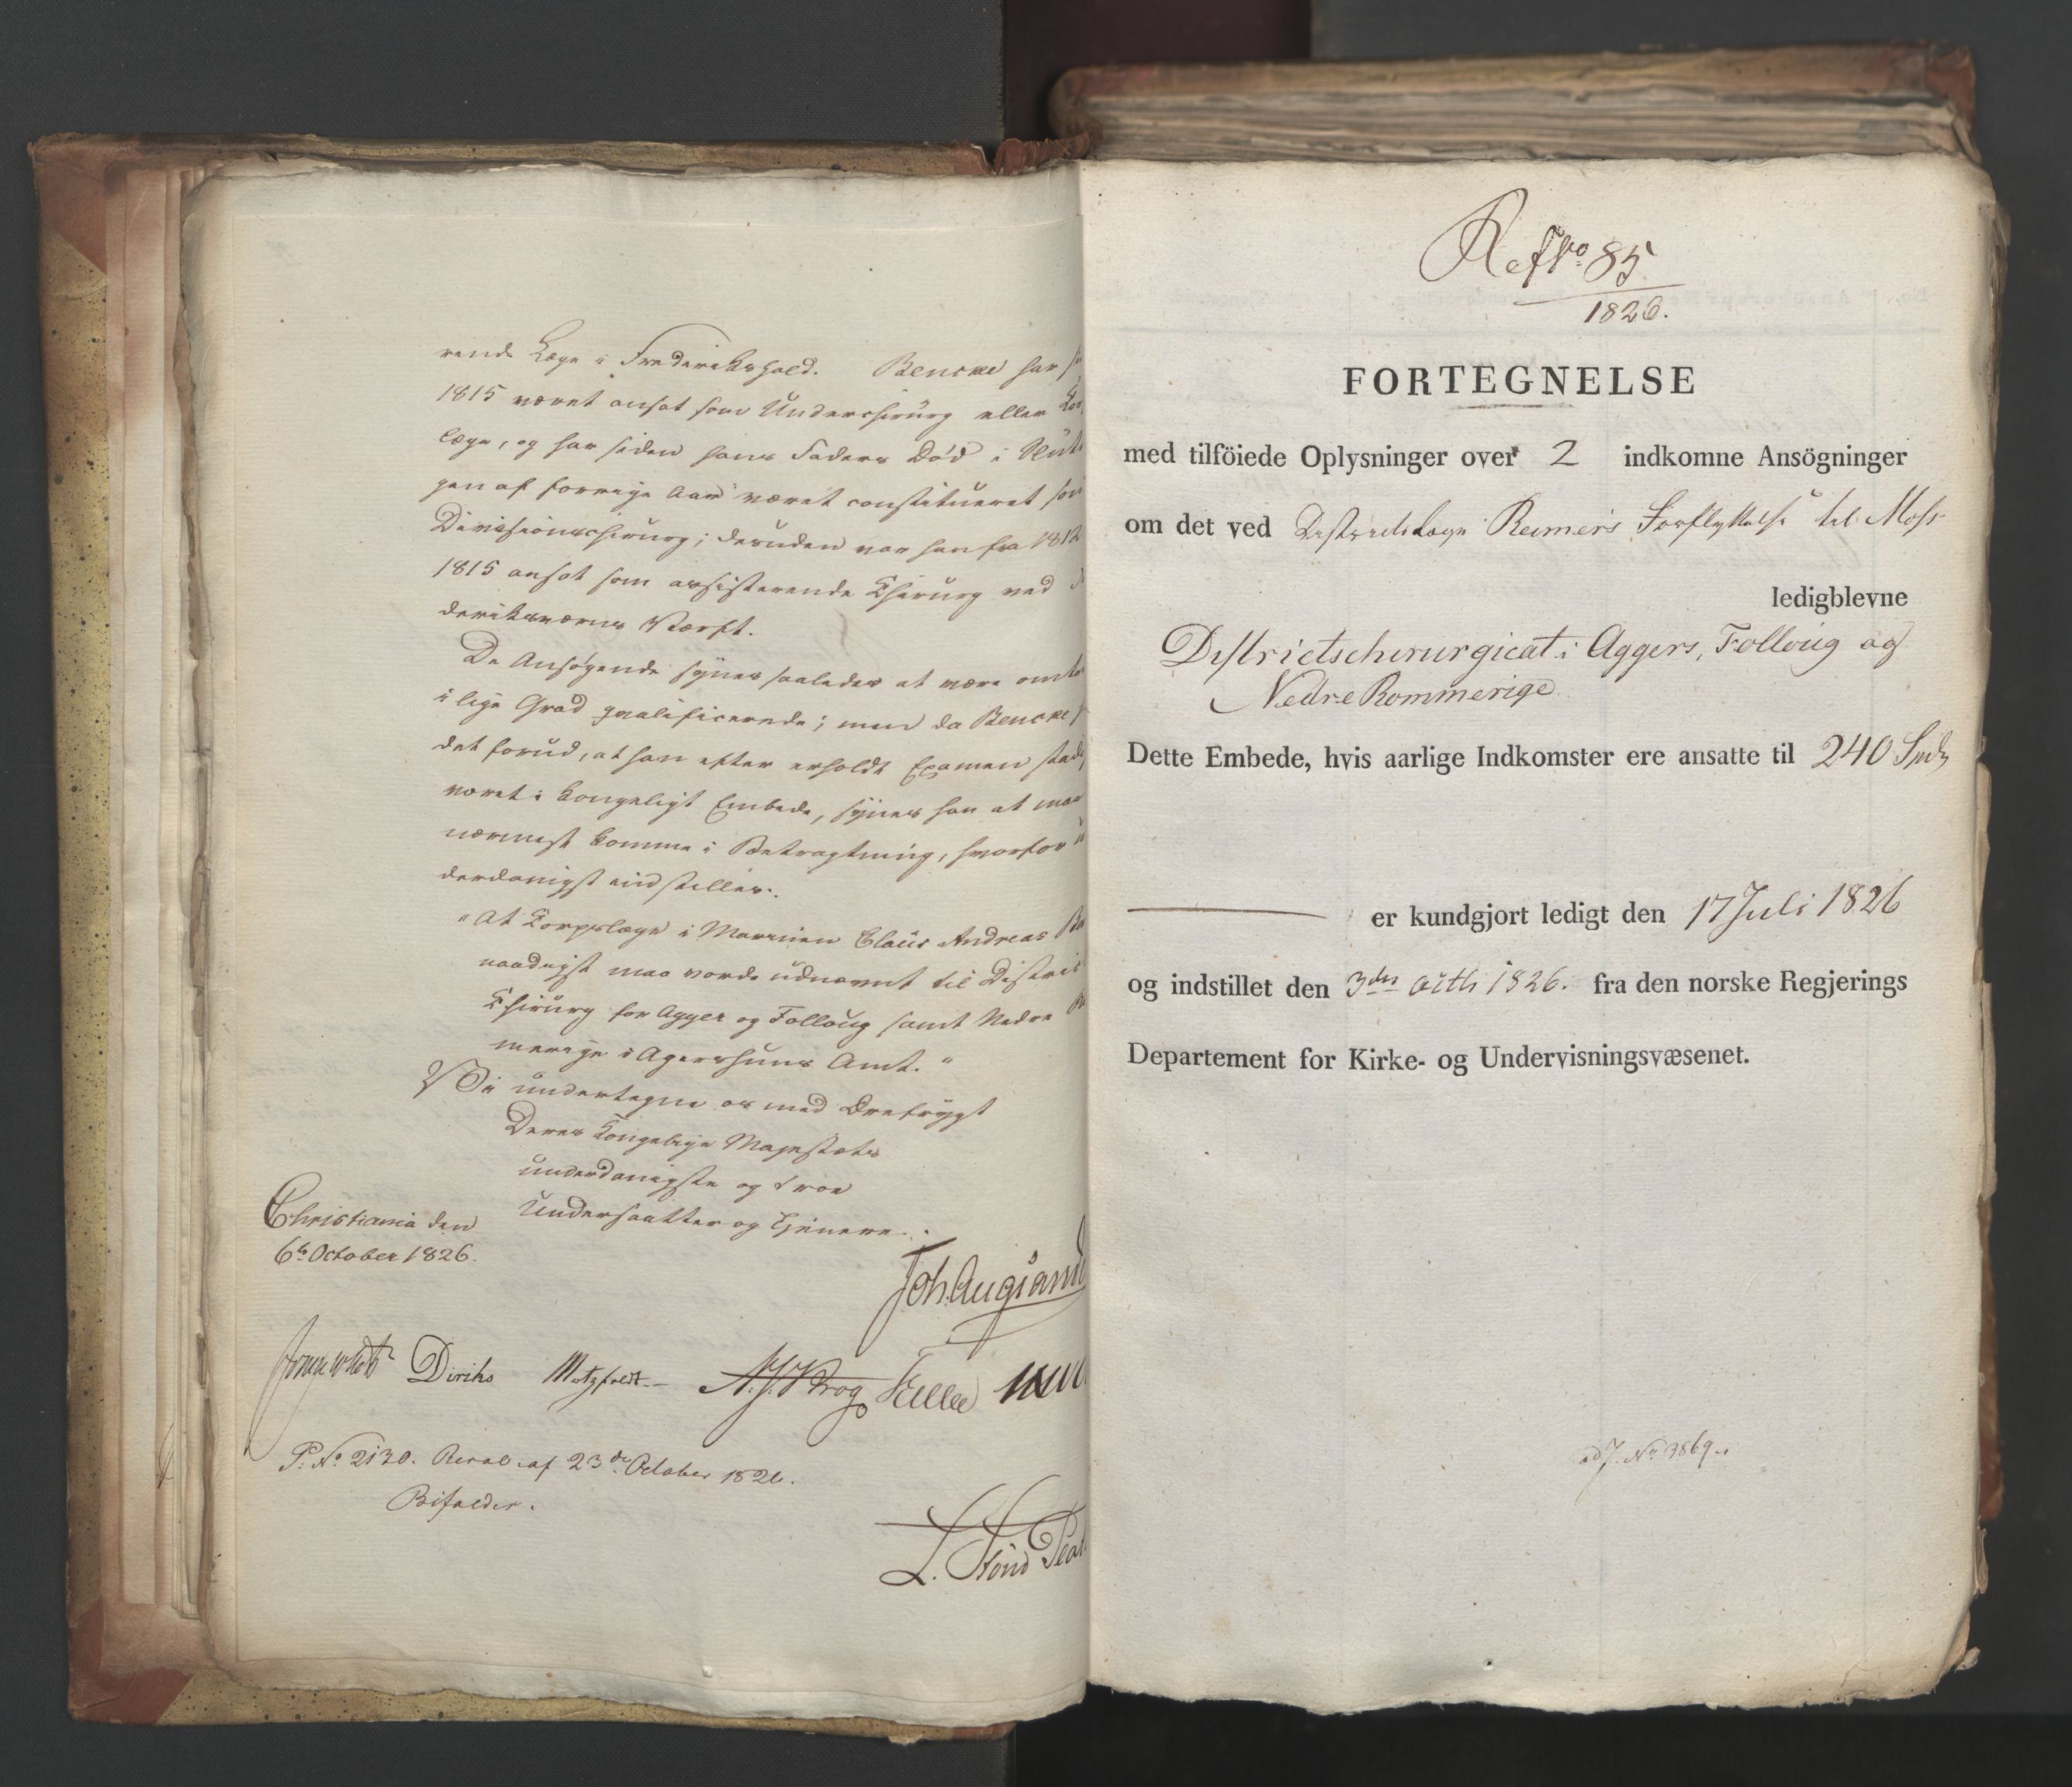 rende Læge i Frederikshald. Bencke har
1815 været ansat som Underchirurg eller
læge, og har siden hans Faders Død i
gen af forrige Aar været constitueret som
Divisionschirurg; desuden var han fra 1812
1815 ansat som assisterende Chirurg ved
deriksværns Værft.
De Ansøgende synes saaledes at være
i lige Grad qvalificerede; men da Bencke
det forud, at han efter erholdt Examen
været i Kongeligt Embede, synes han at maa
nærmest komme i Betragtning, hvorfor
derdanigst indstilles:
"At Corpslæge i Marinen Claus Andreas
naadigst maa vorde udnævnt til
Chirurg for Agger og Follong samt Nedre
merige i Agershuus Amt."
Vi undertegne os med Ærefrygt
Deres Kongelige Majestæts
underdanigste og troe
Undersaatter og Tjenere.
Christiania den
6te October 1826.
Diriks Motzfeldt A. J. Krog
P. No 2130. Resol. af 23de October 1826.
Bifaldes.
Ref No 85
1826.
FORTEGNELSE
med tilföiede Oplysninger over 2 indkomne Ansögninger
om det ved Districtslæge Reimers Forflyttelse til Moss
ledigblevne
Districtschirurgicat i Aggers, Folloug og
Nedre Rommerige
Dette Embede, hvis aarlige Indkomster ere ansatte til 240 Spd
er kundgjort ledigt den 17 Juli 1826
og indstillet den 3die Octb 1826. fra den norske Regjerings
Departement for Kirke- og Undervisningsvæsenet.
ad J. No 3869.